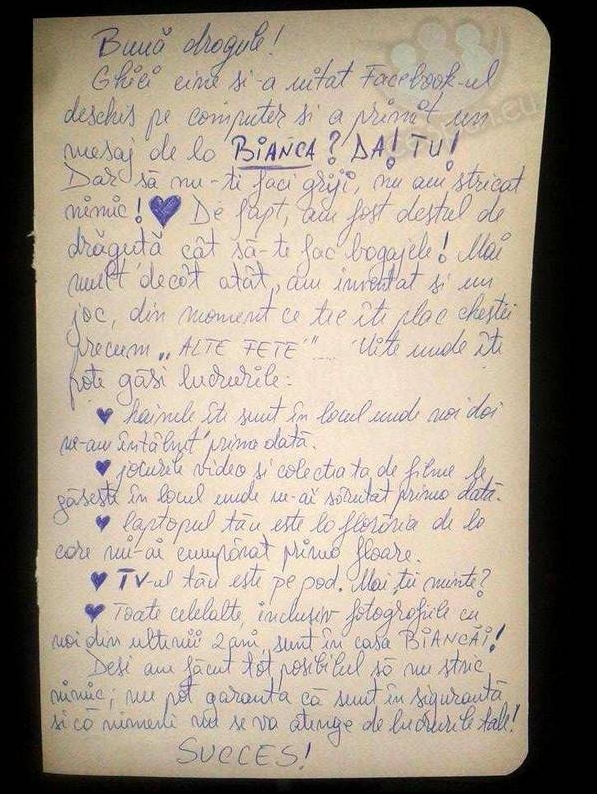 Bună dragule!
Ghici cine și-a uitat Facebook-ul
deschis pe computer si a primit un
mesaj de la BIANCA? DA! TU!
Dar să nu-ti faci griji, nu am stricat
nimic! ♥ De fapt, am fost destul de
drăguță cât să-te fac bagajele! Mai
mult decât atât, am inventat si un
joc, din moment ce tie iti plac chestii
precum „ALTE FETE"... Uite unde îti
poți găsi lucrurile:
♥ hainele îti sunt în locul unde noi doi
ne-am întâlnit prima dată.
♥ jocurile video si colectia ta de filme le
găsesti în locul unde m-ai sărutat prima dată.
♥ laptopul tău este la florăria de la
care mi-ai cumpărat prima floare.
♥ TV-ul tău este pe pod. Mai tii minte?
♥ Toate celelalte, inclusiv fotografiile cu
noi din ultimii 2 ani, sunt în casa BIANCĂI!
Desi am făcut tot posibilul să nu stric
nimic; nu pot garanta că sunt în sigurantă
si că nimeni nu se va atinge de lucrurile tale!
SUCCES!